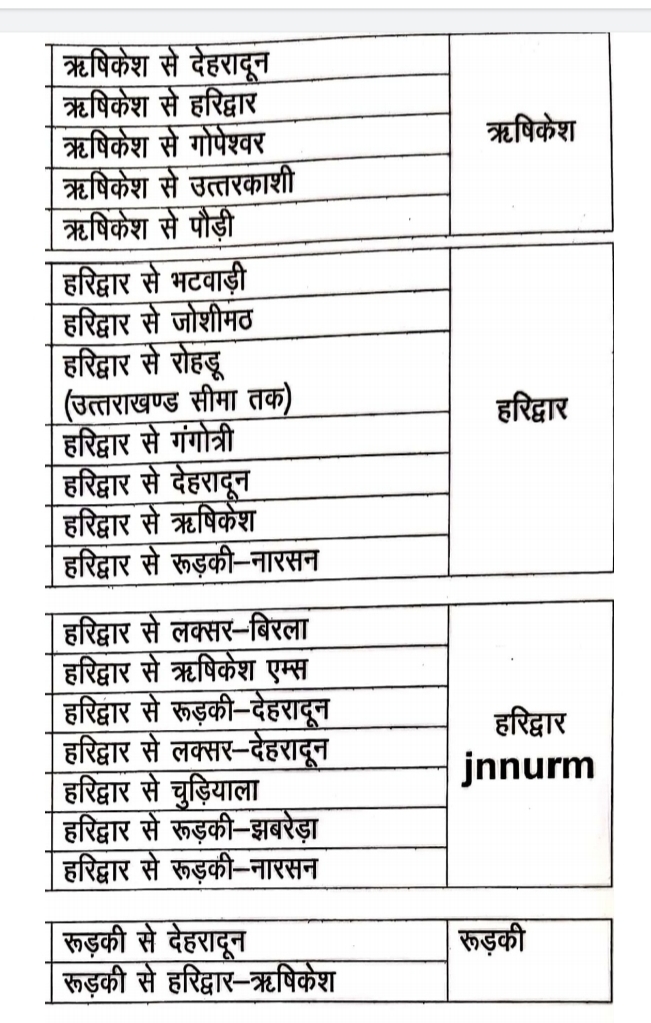 ऋषिकेश से देहरादून
ऋषिकेश से हरिद्वार
ऋषिकेश से गोपेश्वर
ऋषिकेश से उत्तरकाशी
ऋषिकेश से पौड़ी
ऋषिकेश
हरिद्वार से भटवाड़ी
हरिद्वार से जोशीमठ
हरिद्वार से रोहडू
(उत्तराखण्ड सीमा तक)
हरिद्वार से गंगोत्री
हरिद्वार से देहरादून
हरिद्वार से ऋषिकेश
हरिद्वार से रूड़की–नारसन
हरिद्वार
हरिद्वार से लक्सर–बिरला
हरिद्वार से ऋषिकेश एम्स
हरिद्वार से रूड़की–देहरादून
हरिद्वार से लक्सर–देहरादून
हरिद्वार से चुड़ियाला
हरिद्वार से रूड़की–झबरेड़ा
हरिद्वार से रूड़की–नारसन
हरिद्वार
jnnurm
रूड़की से देहरादून
रूड़की से हरिद्वार–ऋषिकेश
रूड़की